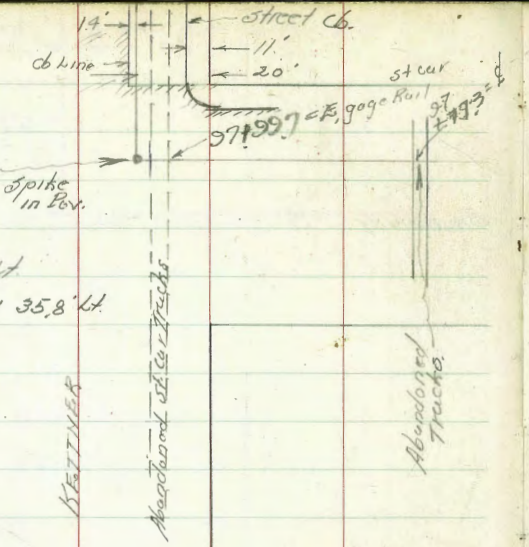 14'
Street Cb.
cb Line
11'
20'
st car
97+99.7 = E, gage Rail
97
+19.3 = ₵
Spike
in Pav.
Lt.
35.8' Lt.
Abandoned st car Tracks
KETTNER
Abandoned
Tracks.